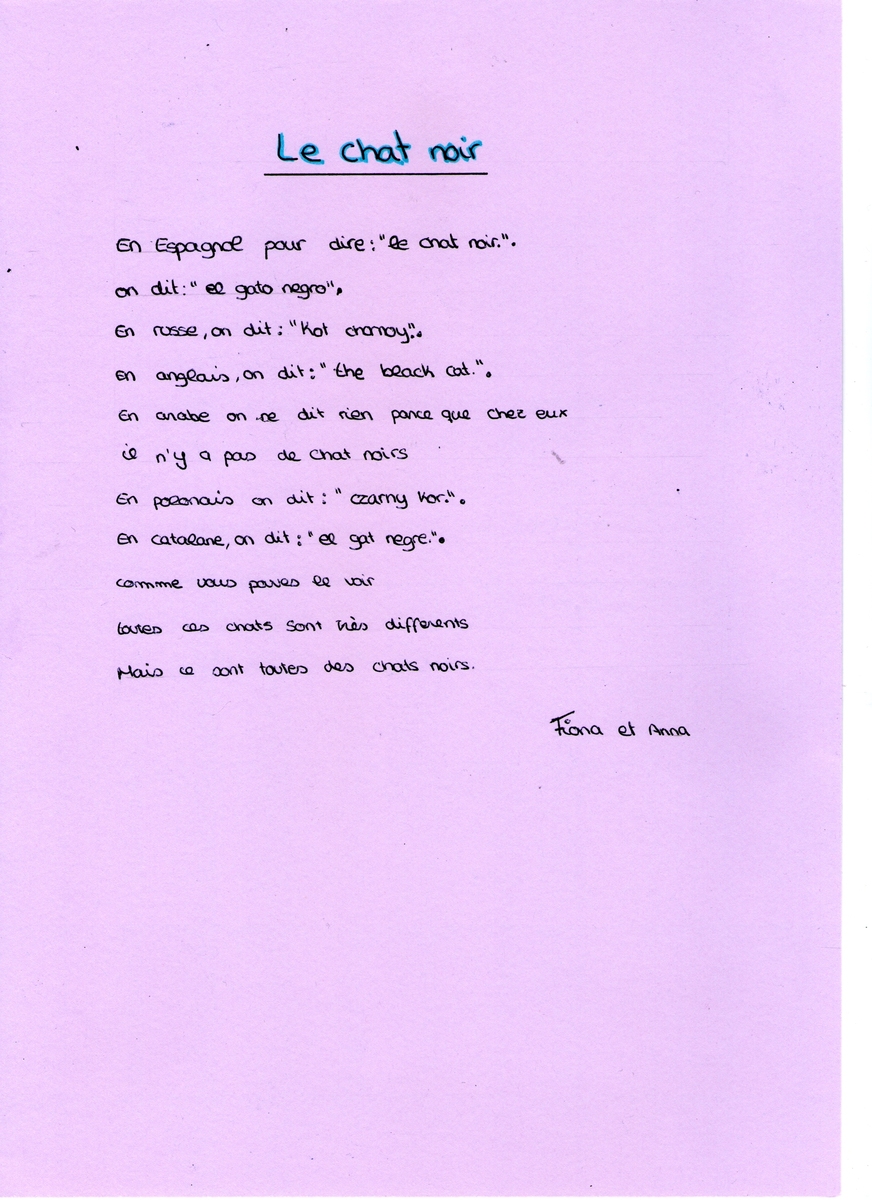 Le chat noir
En Espagnol pour dire : "le chat noir.".
on dit : " el gato negro".
En russe, on dit : "Kot chornoy".
en anglais, on dit : " the black cat.".
En arabe on ne dit rien parce que chez eux
il n'y a pas de chat noirs
En polonais on dit : " czarny kor.".
En catalane, on dit : "el gat negre.".
comme vous pouves le voir
toutes ces chats sont très differents
Mais ce sont toutes des chats noirs.
Fiona et Anna